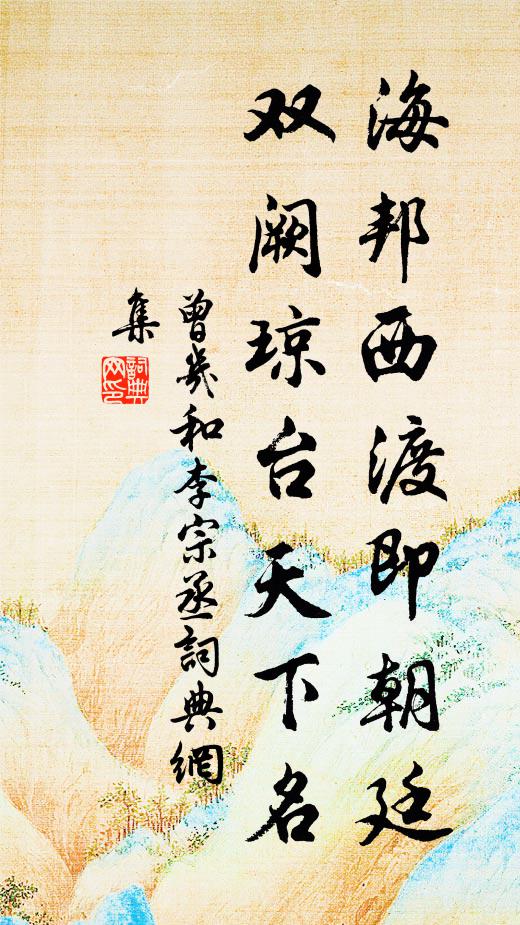 海邦西渡即朝廷
双阙琼台天下名
曾几和李宗丞詞典網
集
詞典
网印